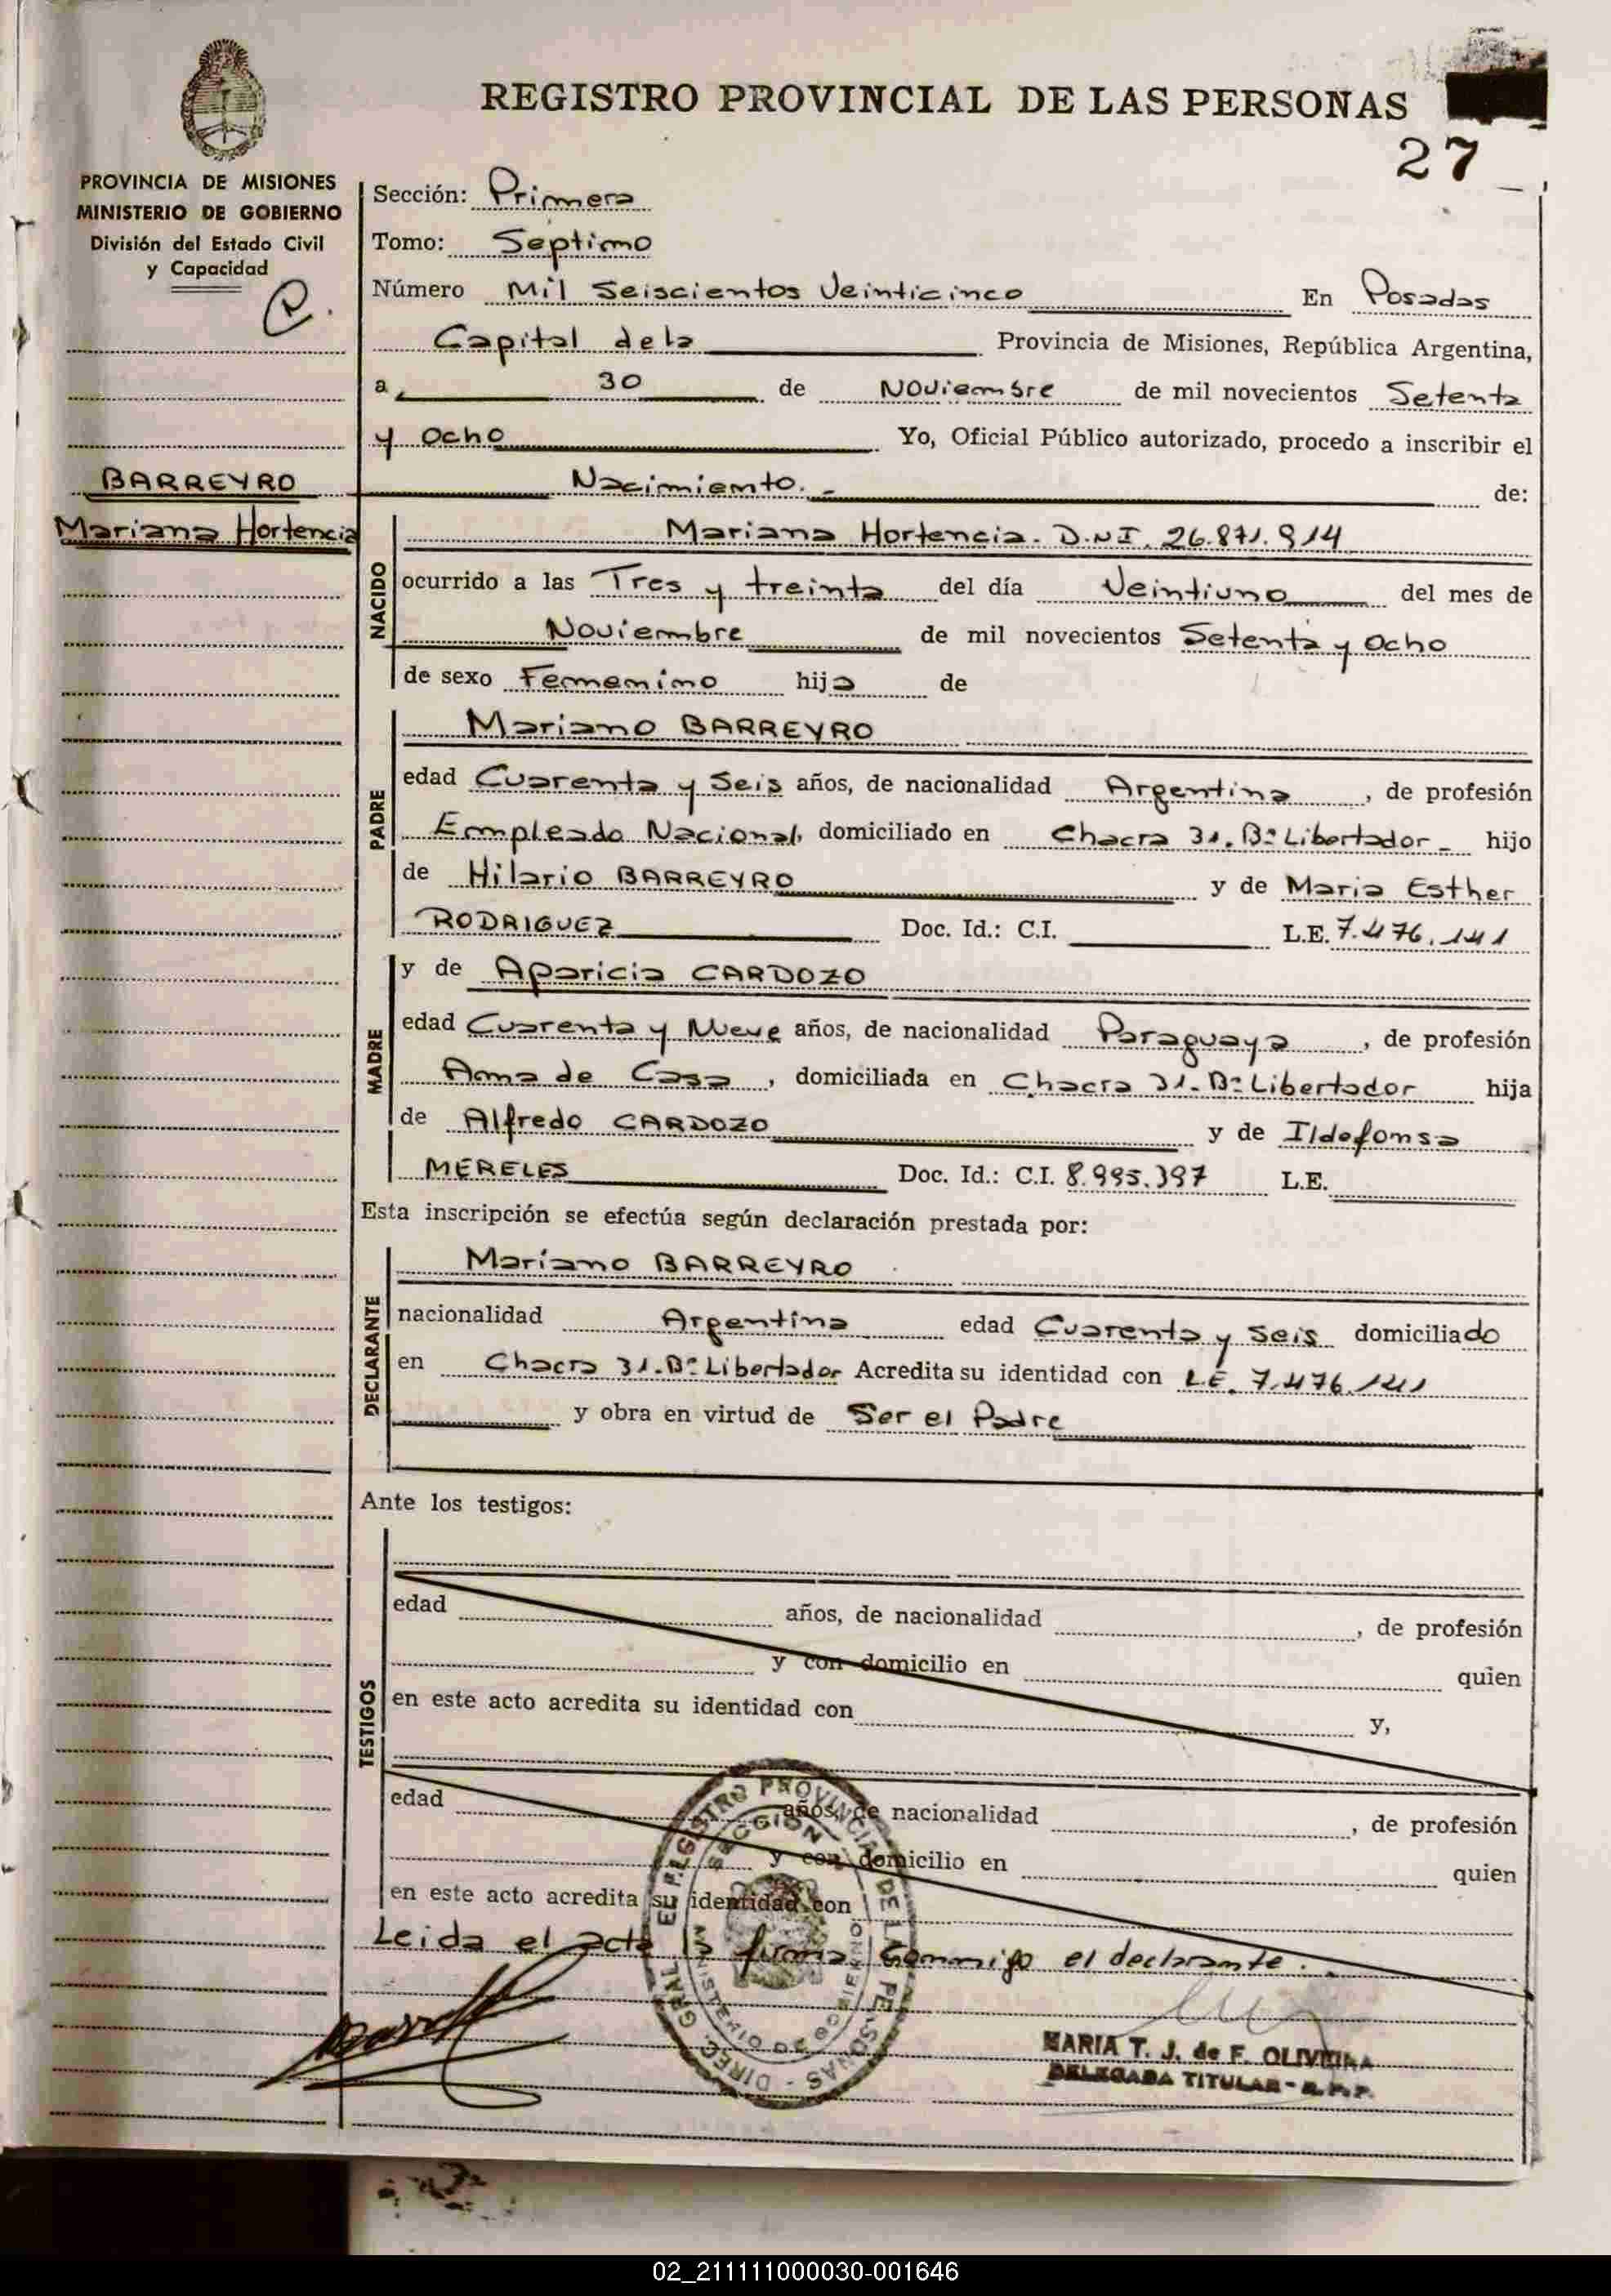 REGISTRO PROVINCIAL DE LAS PERSONAS
27
PROVINCIA DE MISIONES
MINISTERIO DE GOBIERNO
División del Estado Civil
y Capacidad
BARREYRO
Mariana Hortencia
Sección: Primera
Tomo: Septimo
Número Mil Seiscientos Veinticinco En Posadas
Capital de la Provincia de Misiones, República Argentina,
a 30 de Noviembre de mil novecientos Setenta
y Ocho Yo, Oficial Público autorizado, procedo a inscribir el
Nacimiento. - de:
NACIDO
Mariana Hortencia. D.N.I. 26.871.914
ocurrido a las Tres y treinta del día Veintiuno del mes de
Noviembre de mil novecientos Setenta y Ocho
de sexo Femenino hija de
PADRE
Mariano BARREYRO
edad Cuarenta y Seis años, de nacionalidad Argentina, de profesión
Empleado Nacional, domiciliado en Chacra 31. Bº Libertador - hijo
de Hilario BARREYRO y de Maria Esther
RODRIGUEZ Doc. Id.: C.I. L.E. 7.476.141
MADRE
y de Aparicia CARDOZO
edad Cuarenta y Nueve años, de nacionalidad Paraguaya, de profesión
Ama de Casa, domiciliada en Chacra 31. Bº Libertador hija
de Alfredo CARDOZO y de Ildefonsa
MERELES Doc. Id.: C.I. 8.995.397 L.E.
Esta inscripción se efectúa según declaración prestada por:
DECLARANTE
Mariano BARREYRO
nacionalidad Argentina edad Cuarenta y Seis domiciliado
en Chacra 31. Bº Libertador Acredita su identidad con L.E. 7.476.141
y obra en virtud de Ser el Padre
Ante los testigos:
TESTIGOS
edad años, de nacionalidad , de profesión
y con domicilio en quien
en este acto acredita su identidad con y,
edad años, de nacionalidad , de profesión
y con domicilio en quien
en este acto acredita su identidad con
Leida el acta la firma Conmigo el declarante.
DIREC. GRAL. REGISTRO PROVINCIAL DE LAS PERSONAS
SECCION
MINISTERIO DE GOBIERNO
MARIA T. J. de F. OLIVEIRA
DELEGADA TITULAR - R.P.P.
02_211111000030-001646